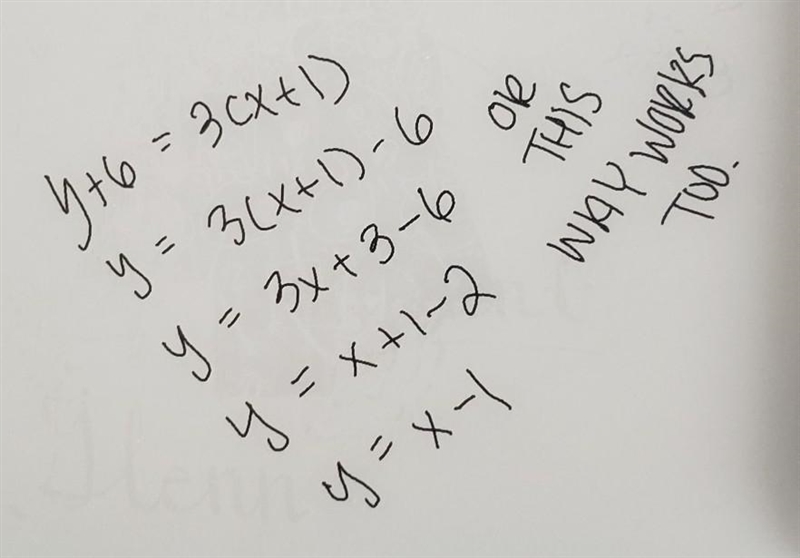 y+6 = 3(x+1)
y = 3(x+1)-6
y = 3x+3-6
y = x+1-2
y = x-1
OR
THIS
WAY WORKS
TOO.